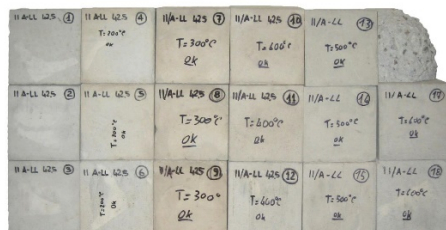 II A-LL 42.5 1
II A-LL 42.5 4
T=200°C
OK
II/A-LL 42.5 7
T=300°C
OK
II/A-LL 42.5 10
T=400°C
OK
II/A-LL 13
T=500°C
OK
II A-LL 42.5 2
II A-LL 42.5 5
T=200°C
OK
II/A-LL 42.5 8
T=300°C
OK
II/A-LL 42.5 11
T=400°C
OK
II/A-LL 14
T=500°C
OK
II/A-LL 17
T=600°C
OK
II A-LL 42.5 3
II A-LL 42.5 6
T=200°C
OK
II/A-LL 42.5 9
T=300°
OK
II/A-LL 42.5 12
T=400°C
OK
II/A-LL 15
T=500°C
OK
II/A-LL 18
T=600°C
OK